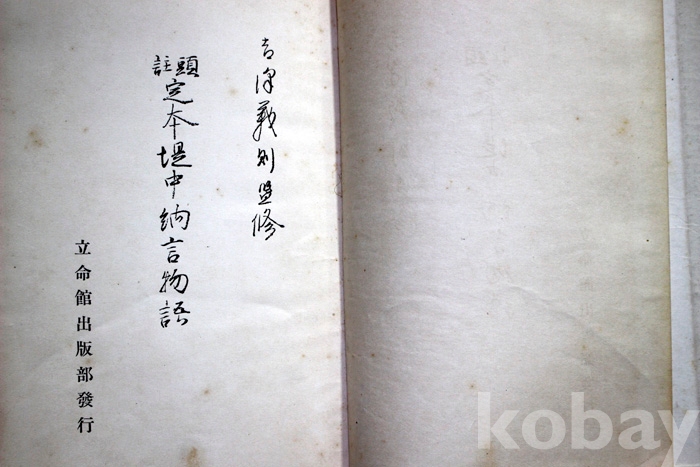 吉澤義則監修
頭註
定本堤中納言物語
立命館出版部發行
kobay